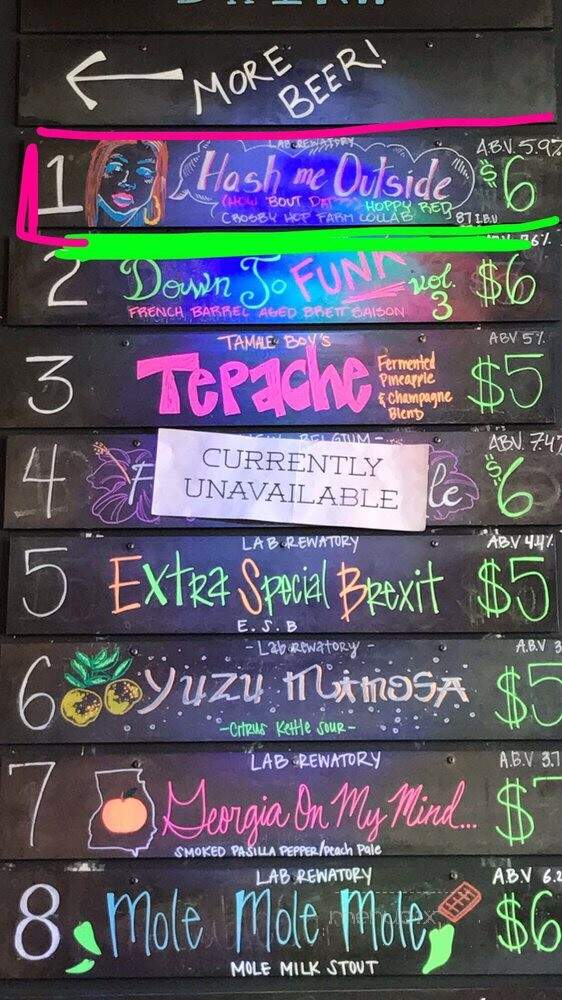 MORE
BEER!
1
LAB REWATORY
Hash me Outside
(HOW 'BOUT DAT???) HOPPY RED
CROSBY HOP FARM COLLAB
87 IBU
ABV 5.9%
$6
2
Down To FUNK vol. 3
FRENCH BARREL AGED BRETT SAISON
$6
3
TAMALE BOY'S
Tepache
Fermented
Pineapple
& Champagne
Blend
ABV 5%
$5
4
BELGIUM-
CURRENTLY
UNAVAILABLE
ABV 7.4%
$6
5
LAB REWATORY
Extra Special Brexit
E.S.B
ABV 4.4%
$5
6
-Lab rewatory-
Yuzu Mimosa
-Citrus Kettle Sour-
A.B.V 3
$5
7
LAB REWATORY
Georgia On My Mind...
SMOKED PASILLA PEPPER/Peach Pale
A.B.V 3.7
$
8
LAB REWATORY
Mole Mole Mole
MOLE MILK STOUT
A.B.V 6.2
$6